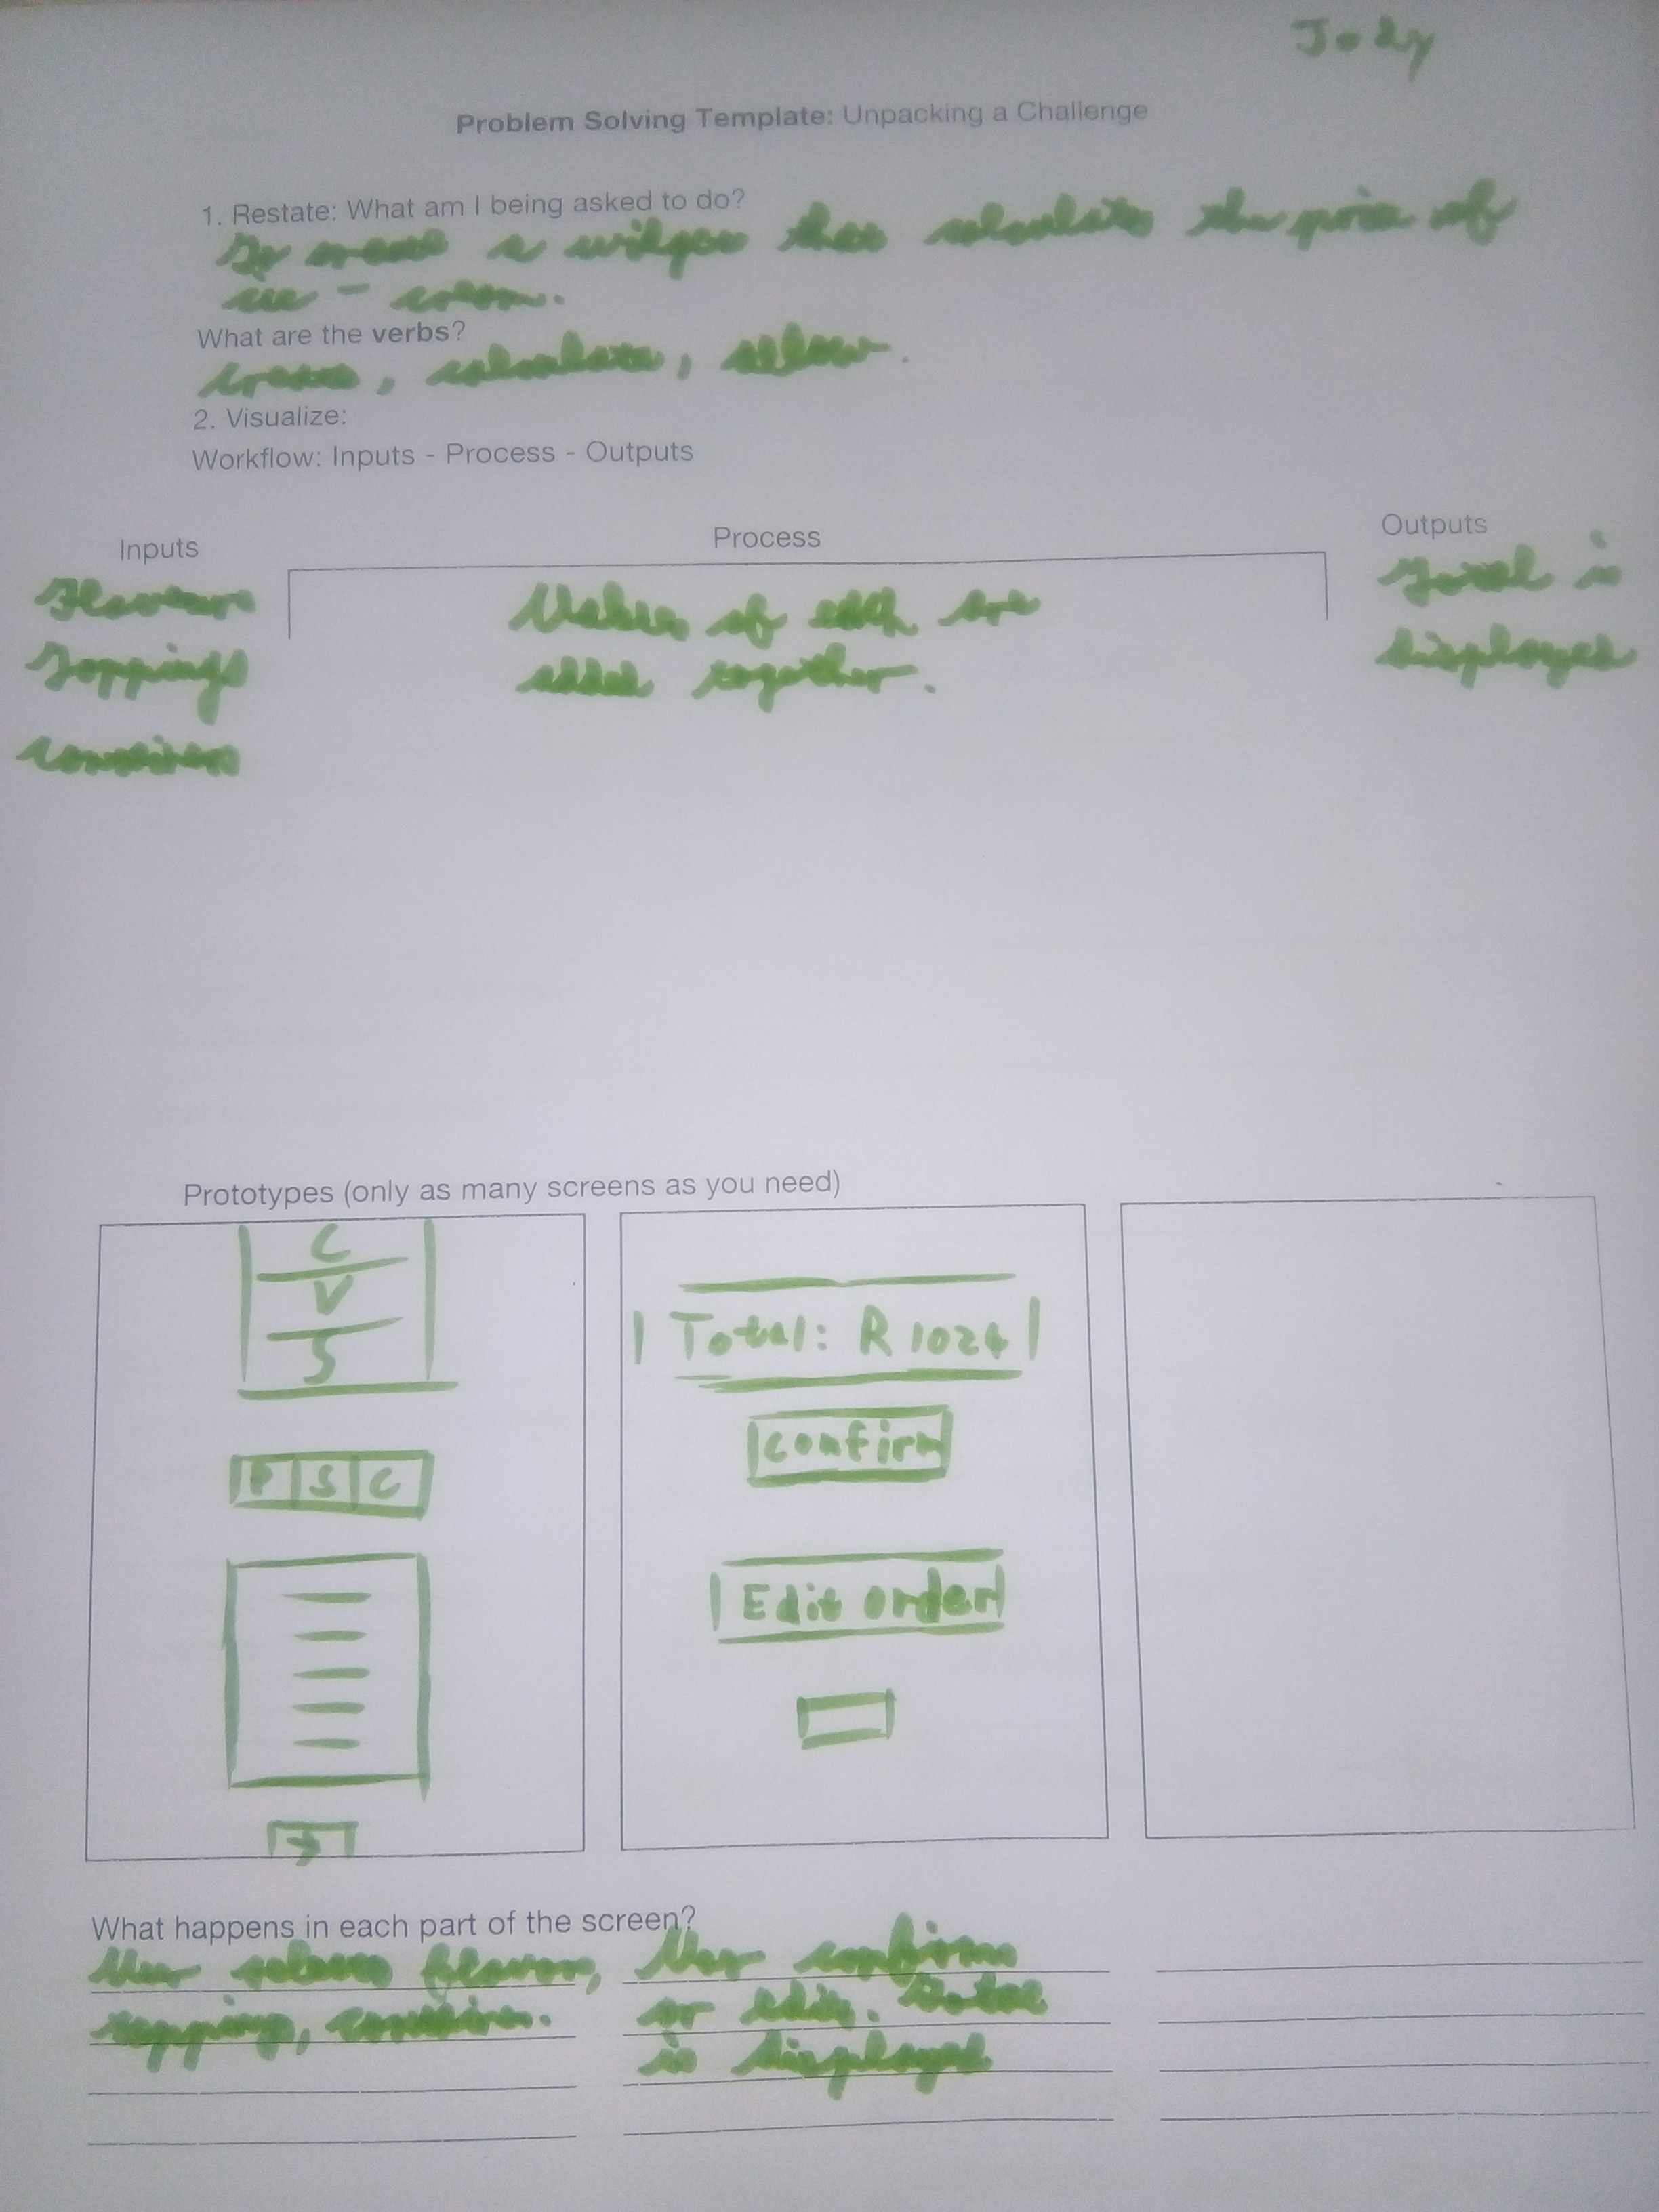 Jody
Problem Solving Template: Unpacking a Challenge
1. Restate: What am I being asked to do?
To create a widget that calculates the price of
ice - cream.
What are the verbs?
Create, calculate, allow.
2. Visualize:
Workflow: Inputs - Process - Outputs
Inputs
Process
Outputs
Flavours
Toppings
Containers
Values of each are
added together.
Total is
displayed
Prototypes (only as many screens as you need)
C
V
S
P S C
→
Total: R 1024
Confirm
Edit order
What happens in each part of the screen?
User selects flavour,
topping, container.
User confirms
or edits. Total
is displayed